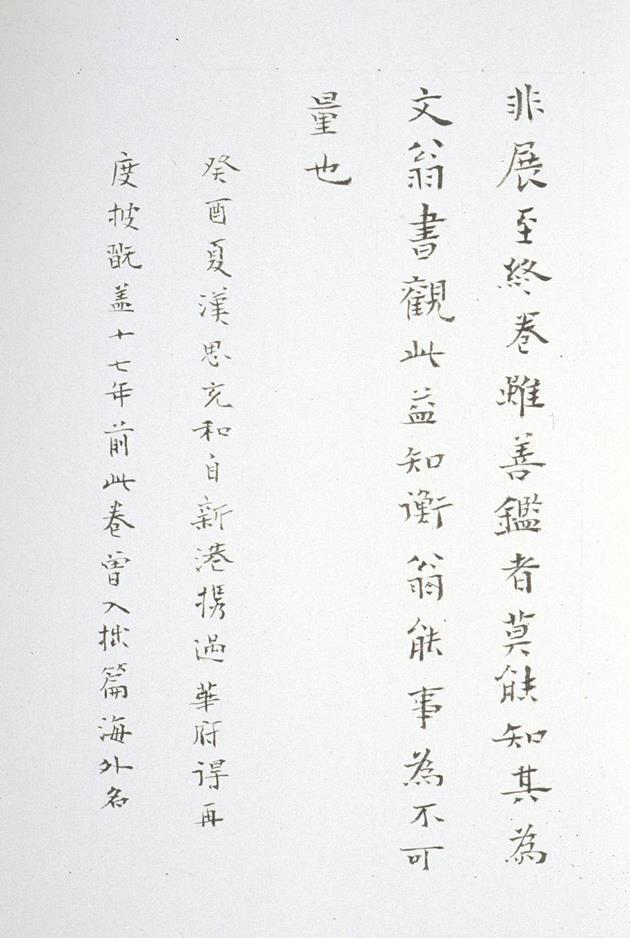 非展至終卷雖善鑑者莫能知其為
文翁書觀此益知衡翁能事為不可
量也
癸酉夏漢思充和自新港攜過華府得再
度披翫盖十七年前此卷曾入拙篇海外名